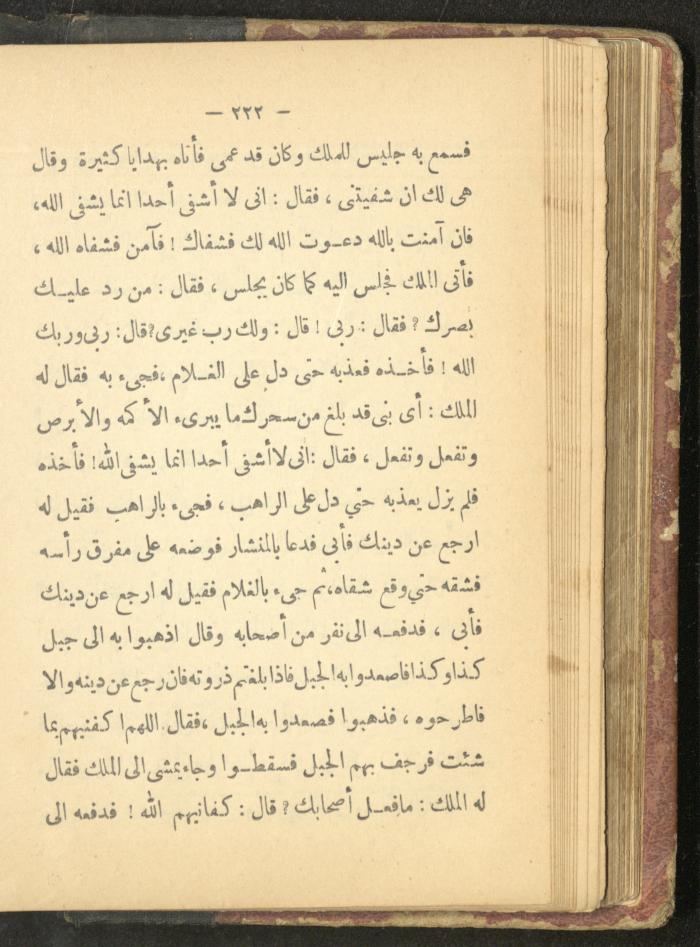 — ٢٢٢ —
فسمع به جليس للملك وكان قد عمى فأتاه بهدايا كثيرة وقال
هى لك ان شفيتنى ، فقال : انى لا أشفى أحدا انما يشفى الله،
فان آمنت بالله دعـوت الله لك فشفاك ! فآمن فشفاه الله ،
فأتى الملك فجلس اليه كما كان يجلس ، فقال : من رد عليـك
بصرك ؟ فقال : ربى ! قال : ولك رب غيرى؟قال: ربى وربك
الله ! فأخـذه فعذبه حتى دل على الغـلام ،فجىء به فقال له
الملك : أى بنى قد بلغ من سحرك ما يبرىء الأكمه والأبرص
وتفعل وتفعل ، فقال :انى لاأشفى أحدا انما يشفى الله! فأخذه
فلم يزل يعذبه حتي دل على الراهب ، فجىء بالراهب فقيل له
ارجع عن دينك فأبي فدعا بالمنشار فوضعه على مفرق رأسه
فشقه حتي وقع شقاه،ثم جىء بالغلام فقيل له ارجع عن دينك
فأبي ، فدفعـه الى نفر من أصحابه وقال اذهبوا به الى جبل
كذاوكذا فاصعدوا به الجبل فاذا بلغتم ذروته فان رجع عن دينه والا
فاطرحوه ، فذهبوا فصعدوا به الجبل ،فقال اللهم اكفنيهم بما
شئت فرجف بهم الجبل فسقطـوا وجاء يمشى الى الملك فقال
له الملك : مافعـل أصحابك ؟ قال : كفانيهم الله ! فدفعه الى